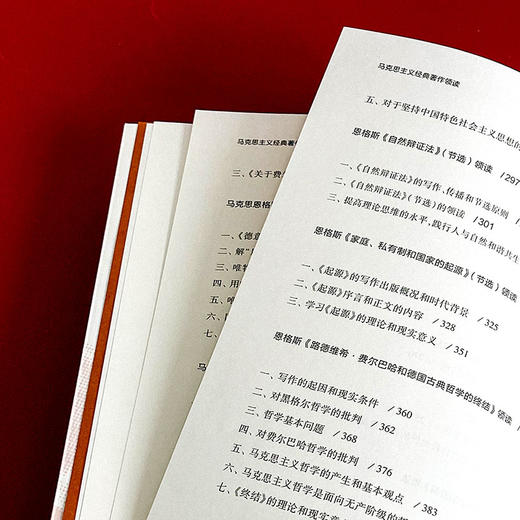 马克思主义经典著作领读
三、《关于费
马克思恩格
一、《德意
二、解“
三、唯物
四、用
五、唯
六、
七、
马
马克思主义经典著作领读
五、对于坚持中国特色社会主义思想的
恩格斯《自然辩证法》（节选）领读 /297
一、《自然辩证法》的写作、传播和节选原则
二、《自然辩证法》（节选）的领读 /301
三、提高理论思维的水平，践行人与自然和谐共生
恩格斯《家庭、私有制和国家的起源》（节选）领读
一、《起源》的写作出版概况和时代背景 /325
二、《起源》序言和正文的内容 /328
三、学习《起源》的理论和现实意义 /351
恩格斯《路德维希·费尔巴哈和德国古典哲学的终结》领读
一、写作的起因和现实条件 /360
二、对黑格尔哲学的批判 /362
三、哲学基本问题 /368
四、对费尔巴哈哲学的批判 /376
五、马克思主义哲学的产生和基本观点 /383
六、马克思主义哲学是面向无产阶级的
七、《终结》的理论和现实意